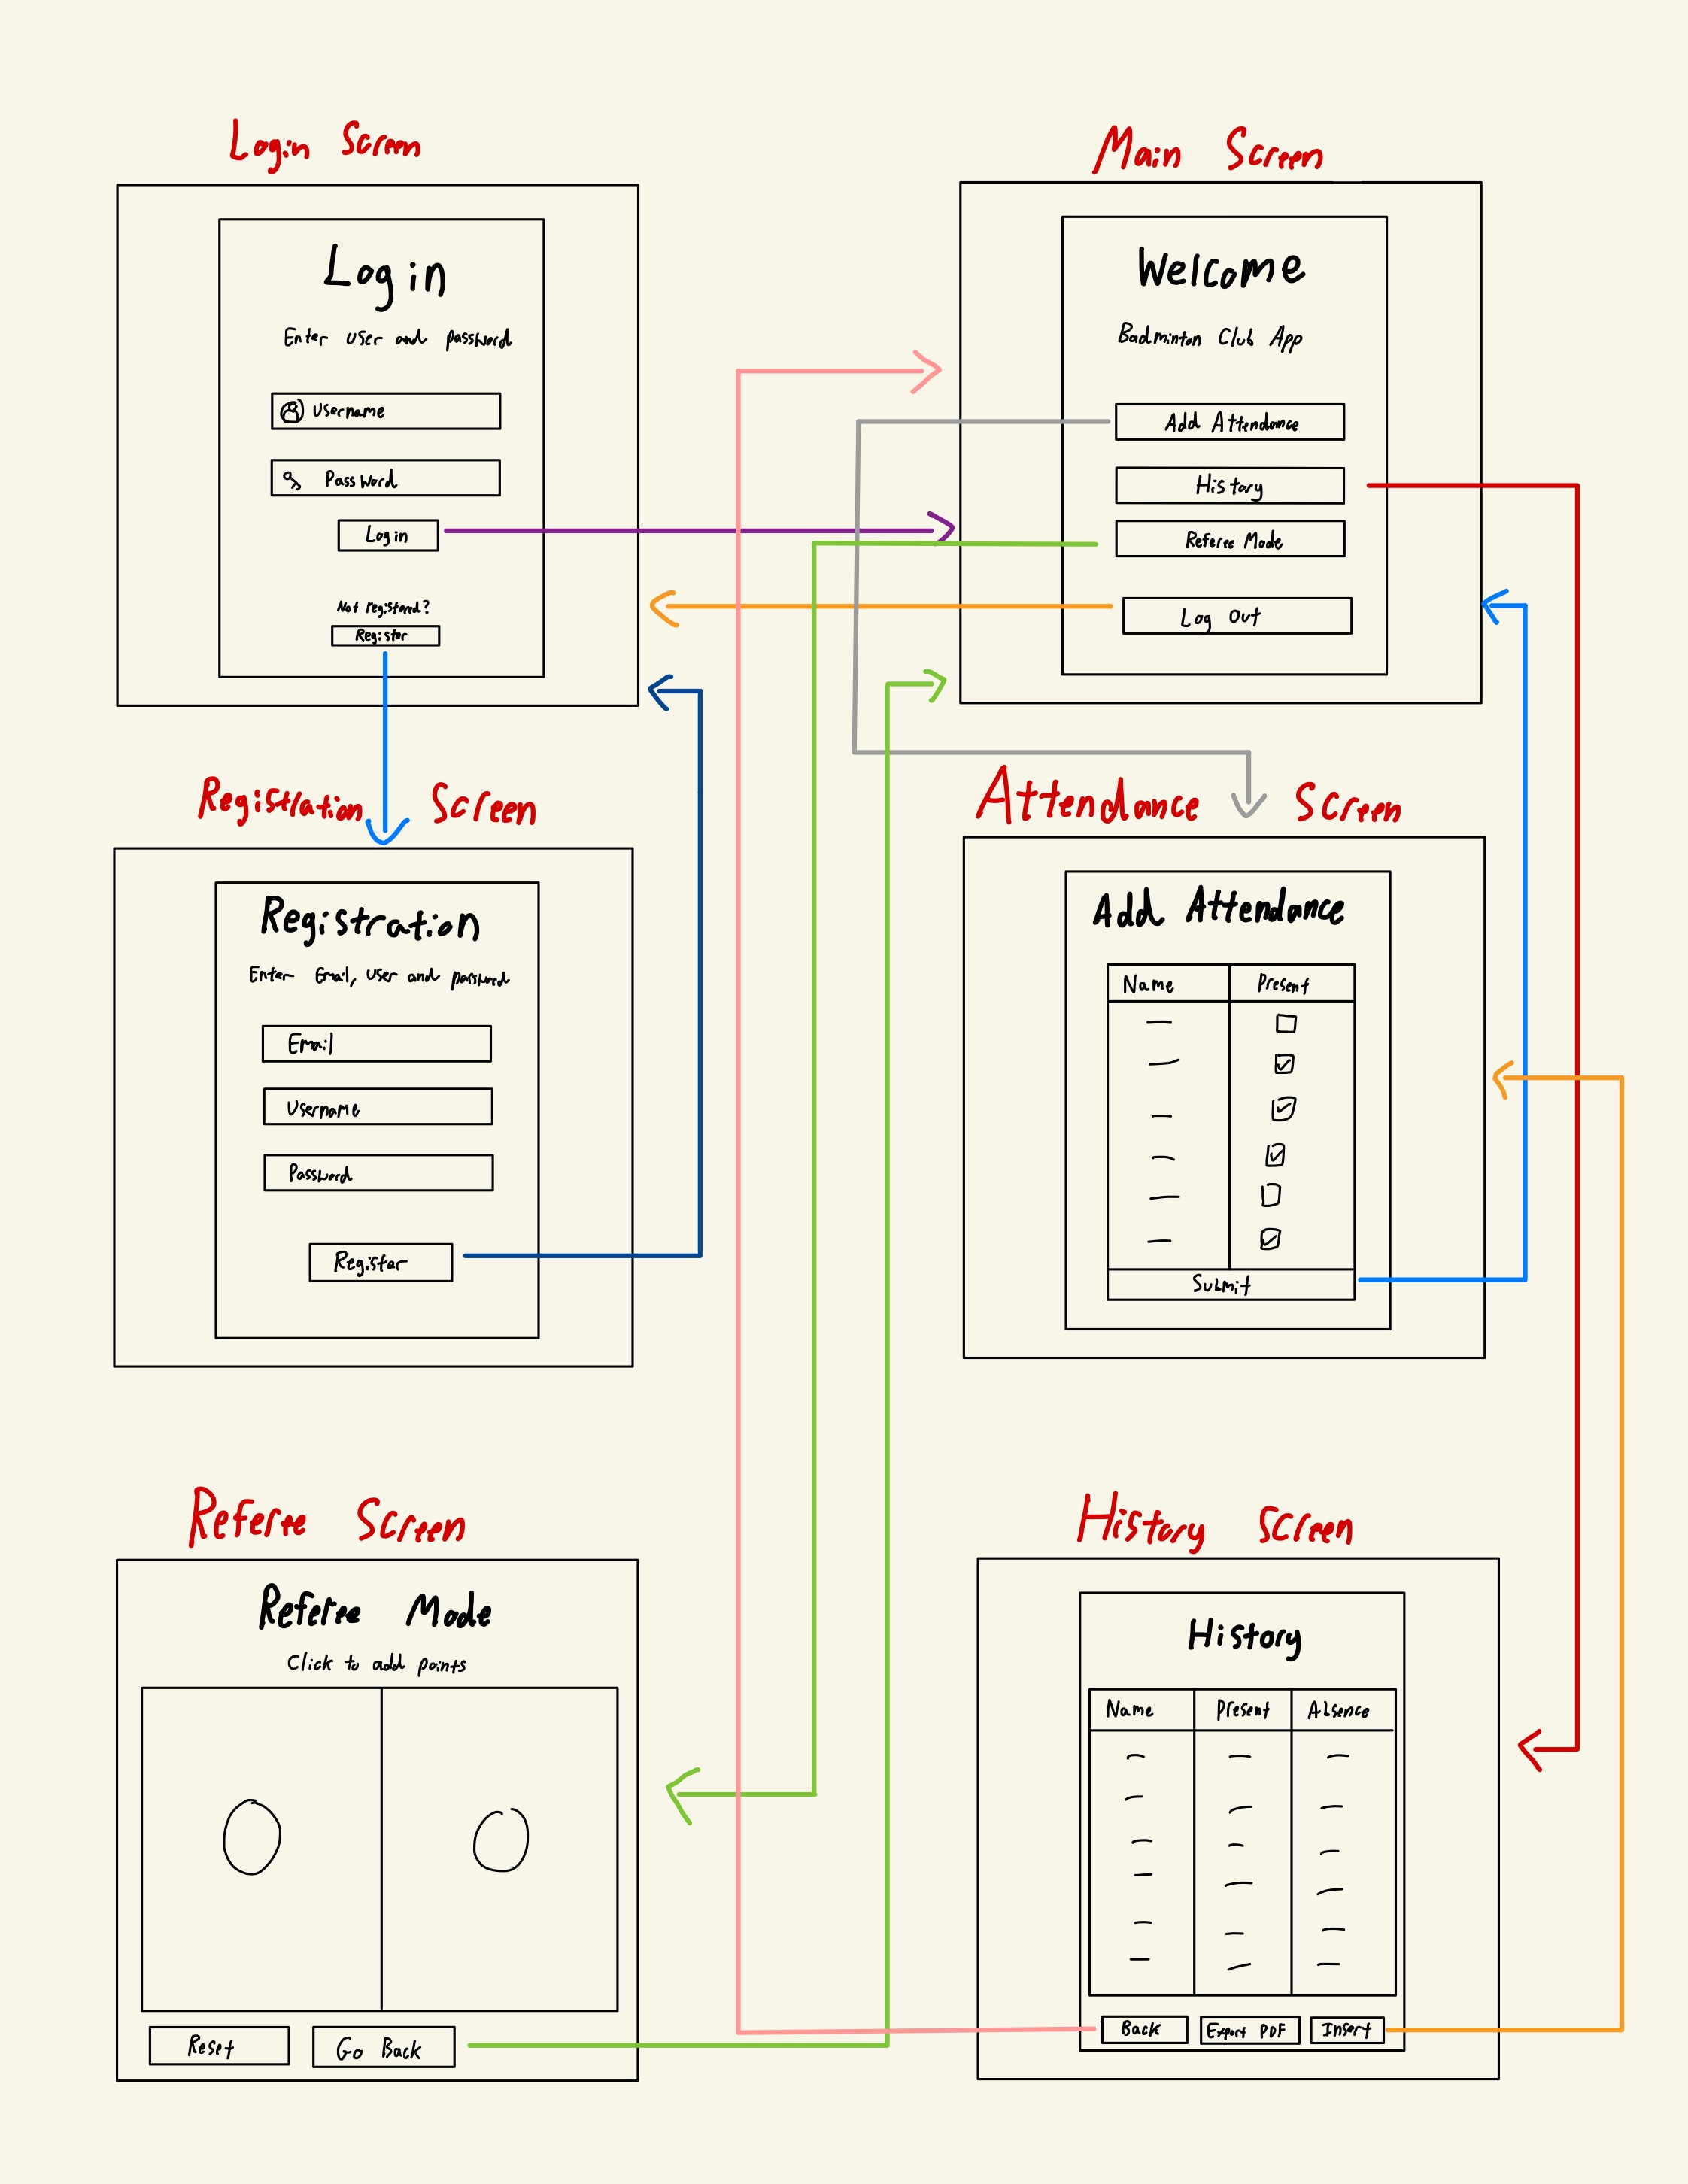 Login Screen
Login
Enter user and password
Username
Password
Login
Not registered?
Register
Main Screen
Welcome
Badminton Club App
Add Attendance
History
Referee Mode
Log Out
Registration Screen
Registration
Enter Email, user and password
Email
Username
Password
Register
Attendance Screen
Add Attendance
Name Present
Submit
Referee Screen
Referee Mode
Click to add points
Reset Go Back
History Screen
History
Name Present Absence
Back Export PDF Insert